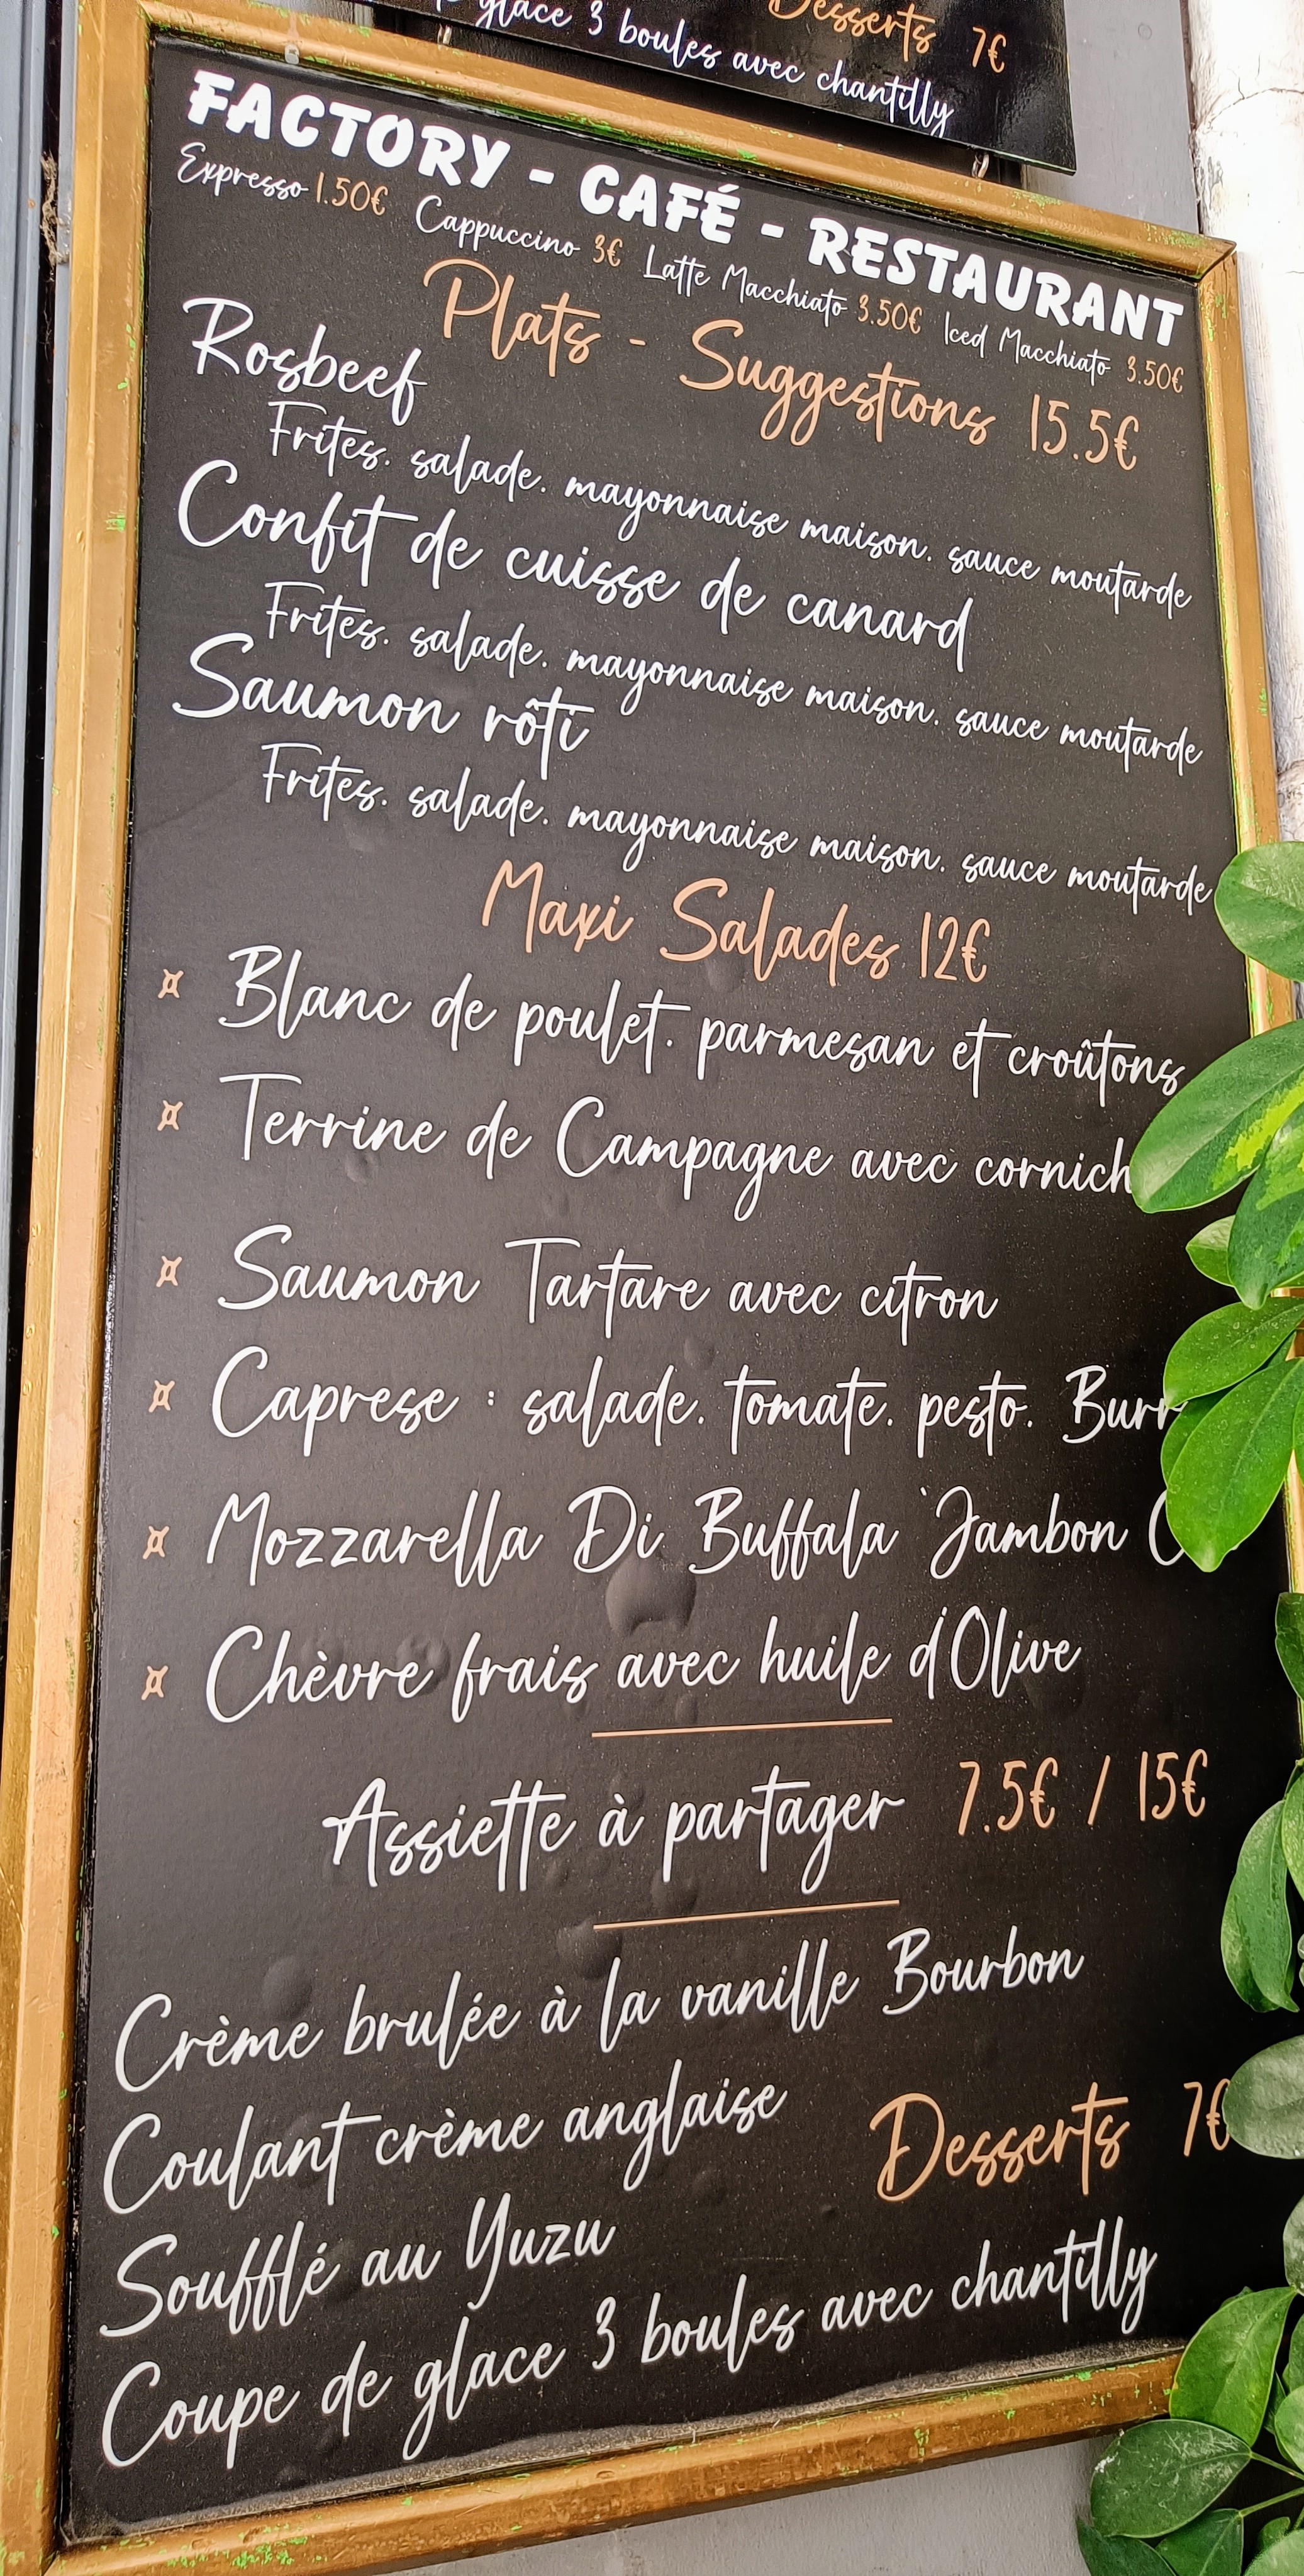 Desserts 7€
glace 3 boules avec chantilly
FACTORY - CAFÉ - RESTAURANT
Expresso 1.50€ Cappuccino 3€ Latte Macchiato 3.50€ Iced Macchiato 3.50€
Plats - Suggestions 15.5€
Rosbeef
Frites. salade. mayonnaise maison. sauce moutarde
Confit de cuisse de canard
Frites. salade. mayonnaise maison. sauce moutarde
Saumon rôti
Frites. salade. mayonnaise maison. sauce moutarde
Maxi Salades 12€
¤ Blanc de poulet. parmesan et croûtons
¤ Terrine de Campagne avec cornich
¤ Saumon Tartare avec citron
¤ Caprese : salade. tomate. pesto. Burr
¤ Mozzarella Di Buffala Jambon C
¤ Chèvre frais avec huile d'Olive
Assiette à partager 7.5€ / 15€
Crème brulée à la vanille Bourbon
Coulant crème anglaise
Desserts 7€
Soufflé au Yuzu
Coupe de glace 3 boules avec chantilly